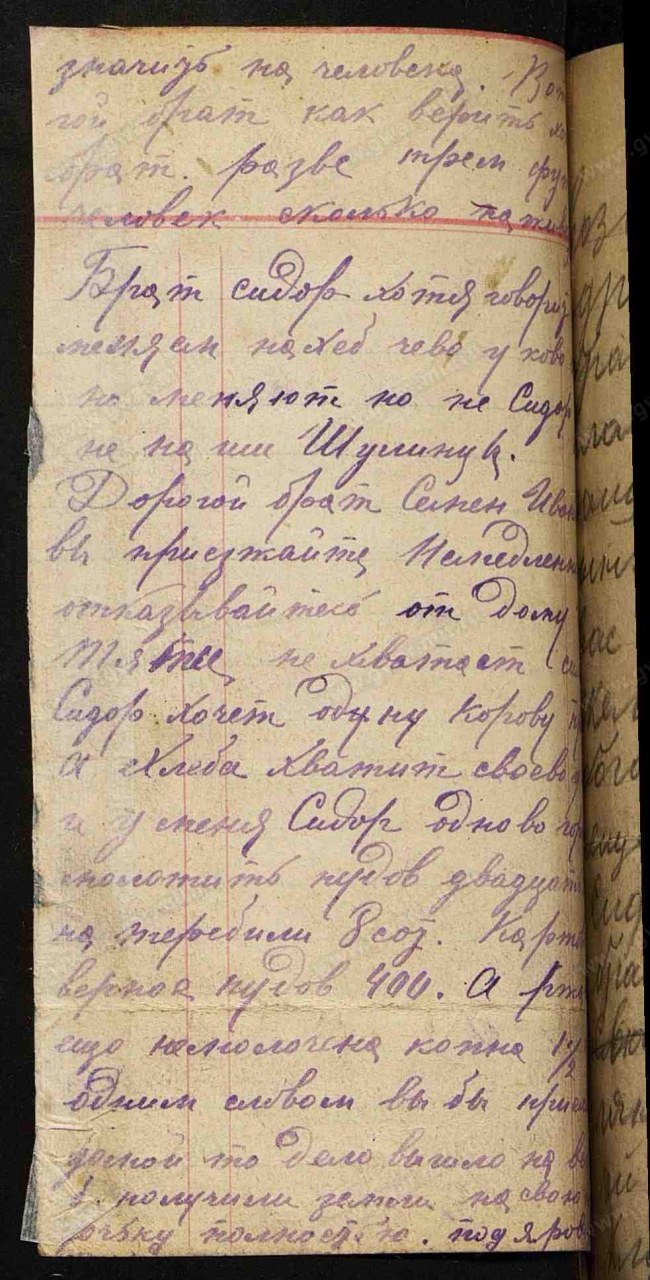 значить на человека. Вот
гой брат как верить
брат. разве трем
человек сколько
Брат сидор хотя говорит
меняем нахлеб чево у ково
но меняют но не Сидор
не на ши Шулинцы.
Дорогой брат Семен Иван
вы приезжайте Немедленно
отказывайтесь от дому
не хватает
Сидор хочет одну корову
а хлеба хватит своево
и у меня Сидор одново
молотить пудов двадцать
на теребили 8 сот. Карто
верное пудов 400. А ржи
ищо немолочена копна 1½
одним словом вы бы прие
домой то дело вышло на
получили земли на свою
полностью. под яров